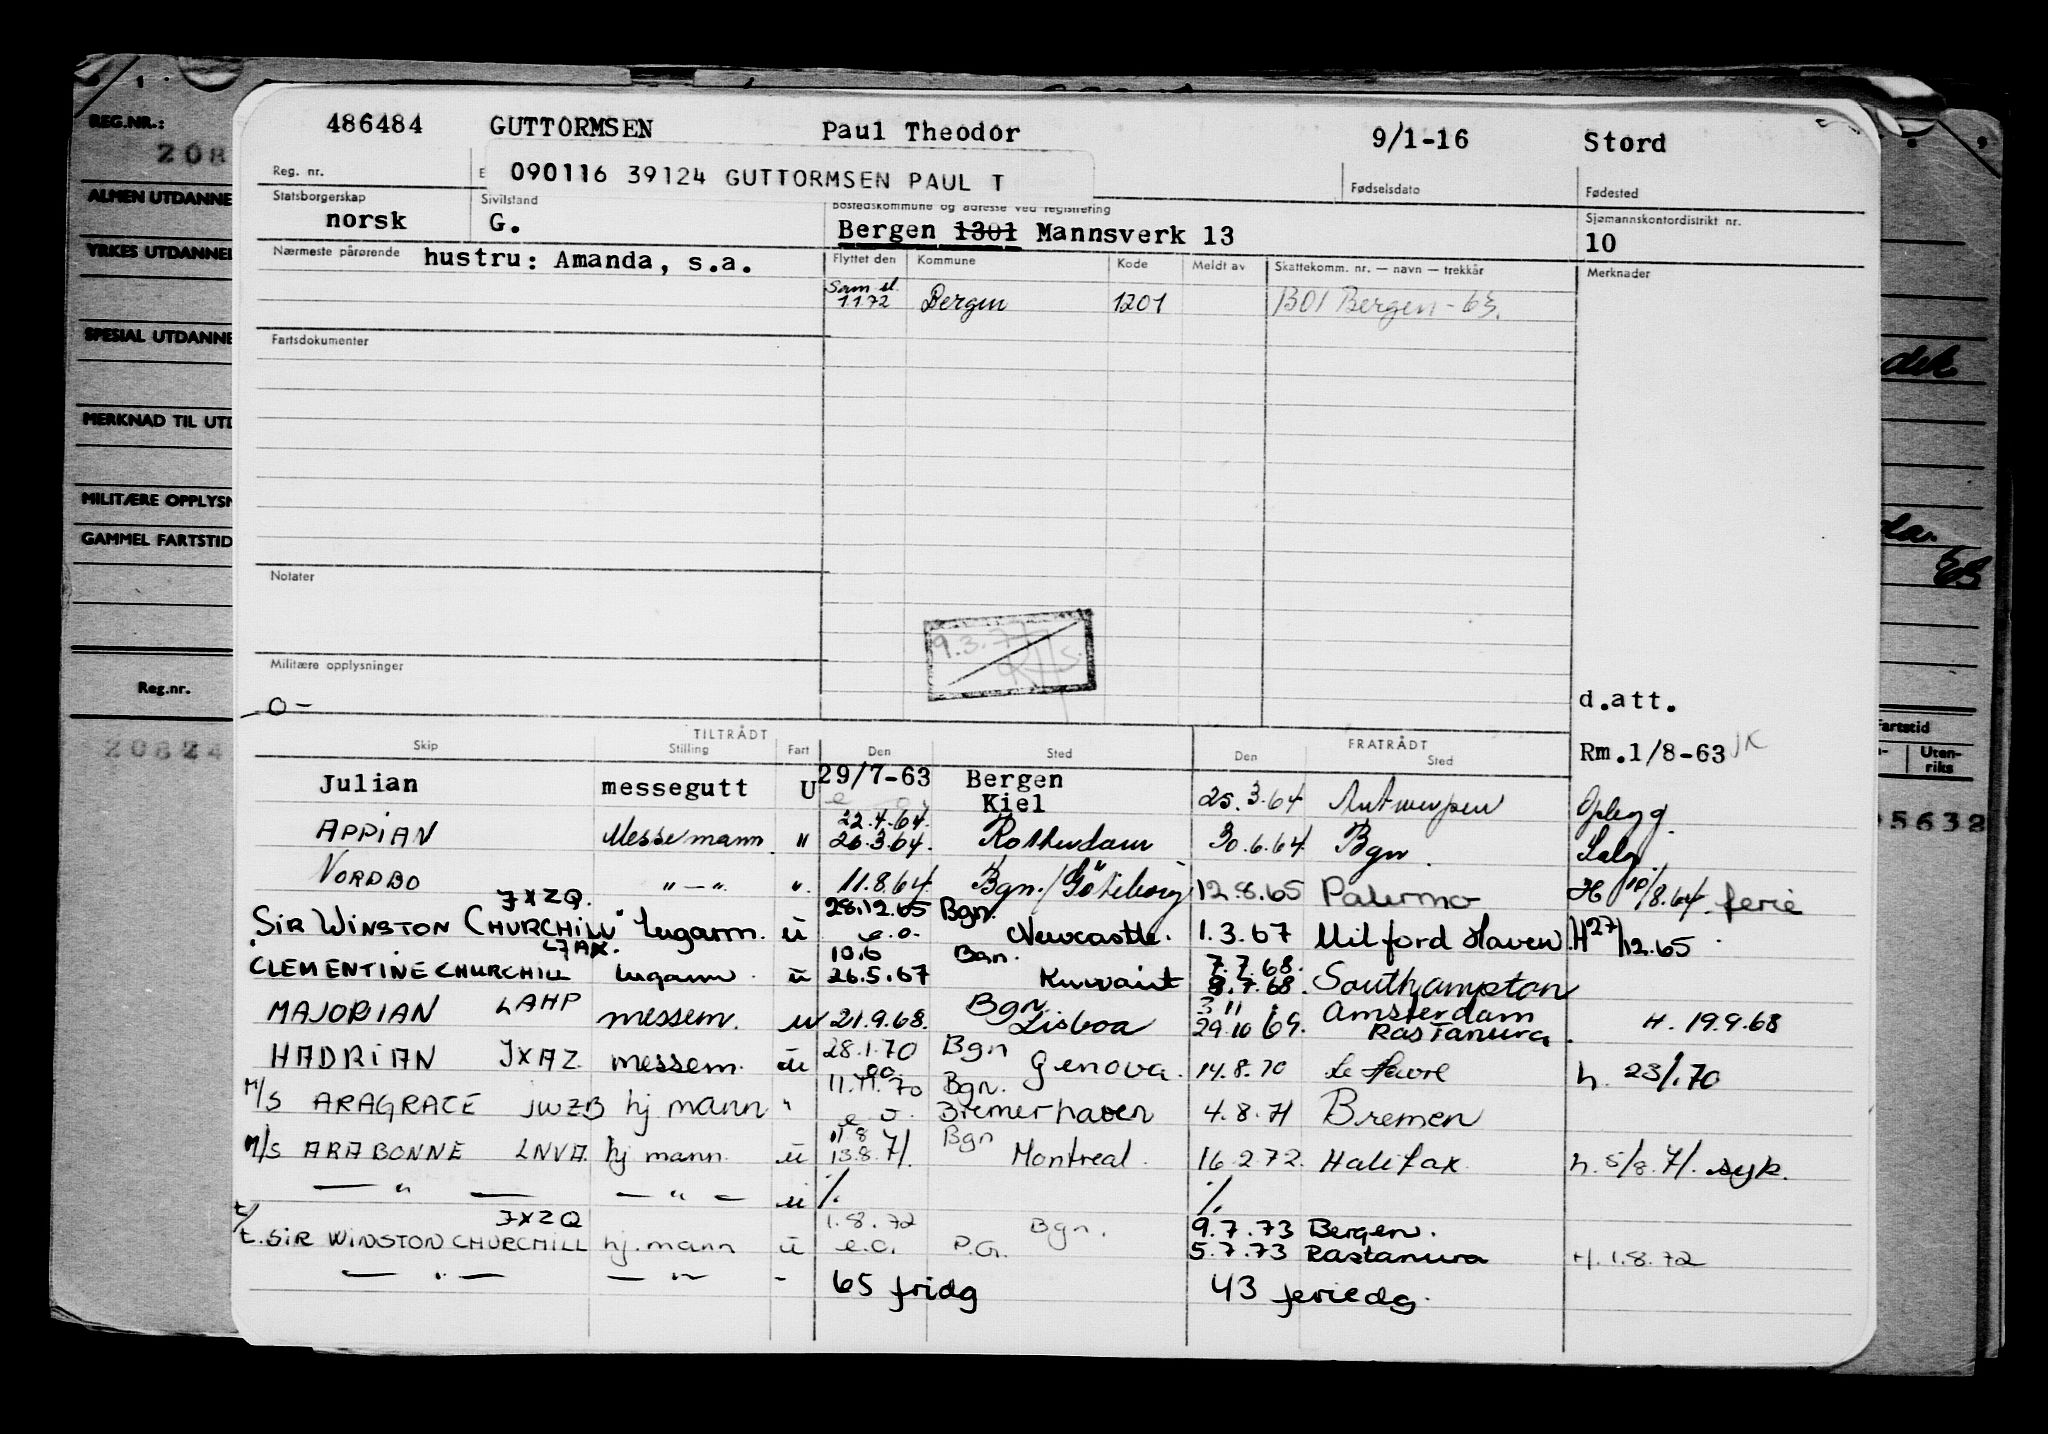 REG.NR.:
208
ALMEN UTDANNE
YRKES UTDANNE
SPESIAL UTDANNE
MERKNAD TIL UTD
MILITÆRE OPPLYSN
GAMMEL FARTSTID
Reg.nr.
20824
486484 GUTTORMSEN Paul Theodor 9/1-16 Stord
Reg. nr. E 090116 39124 GUTTORMSEN PAUL T Fødselsdato Fødested
Statsborgerskap Sivilstand Bostedskommune og adresse ved registrering Sjømannskontordistrikt nr.
norsk G. Bergen 1301 Mannsverk 13 10
Nærmeste pårørende hustru: Amanda, s.a. Flyttet den Kommune Kode Meldt av Skattekomm. nr. — navn — trekkår Merknader
1172 Bergen 1201 1301 Bergen - 63.
Fartsdokumenter
Notater
9.3.77
Militære opplysninger
-0- d.att.
TILTRÅDT FRATRÅDT
Skip Stilling Fart Den Sted Den Sted Rm.1/8-63 JK
Julian messegutt U 29/7-63 Bergen
Kiel 25.3.64 Antwerpen Oplegg
22.4.64.
APPIAN Messemann " 26.3.64. Rotterdam 30.6.64 Bgn. Salg.
NORDBO " — ". ". 11.8.64 Bgn./Göteborg 12.8.65 Palermo H 10/8.64. ferie
JXZQ. 28.12.65 Bgn.
SIR WINSTON CHURCHILL" lugarm. ü e.o. Newcastle. 1.3.67 Milford Haven. H 27/12.65
LJAK. 10.6 Bgn. 7.7.68.
CLEMENTINE CHURCHILL lugarm. ü 26.5.67 Kuwait 8.7.68. Southampton
MAJORIAN LAHP messem. u 21.9.68. Bgn Lisboa 3 11 29.10 69. Amsterdam Rastanura. H. 19.9.68
HADRIAN JXAZ messem. ü 28.1.70 e.o. Bgn Genova. 14.8.70 Le Havre h. 23/1.70
M/S ARAGRACE JWZB hj mann " 11.11.70 e.o. Bgn. Bremerhaven 4.8.71 Bremen
M/S ARABONNE LNVA. hj mann. ü 11 8 13.8.71. Bgn Montreal. 16.2.72. Halifax. h. 5/8.71. syk.
— " — — " — ü %. %.
JXZQ 1.8.72 Bgn. 9.7.73 Bergen.
t/t. SIR WINSTON CHURCHILL hj. mann ü e.o. P.G. 5.7.73 Rastanura H. 1.8.72
— " — — " — - 65 fridg 43 feriedg.
dek
da.
63
Fartstid
Uten-
riks
05632